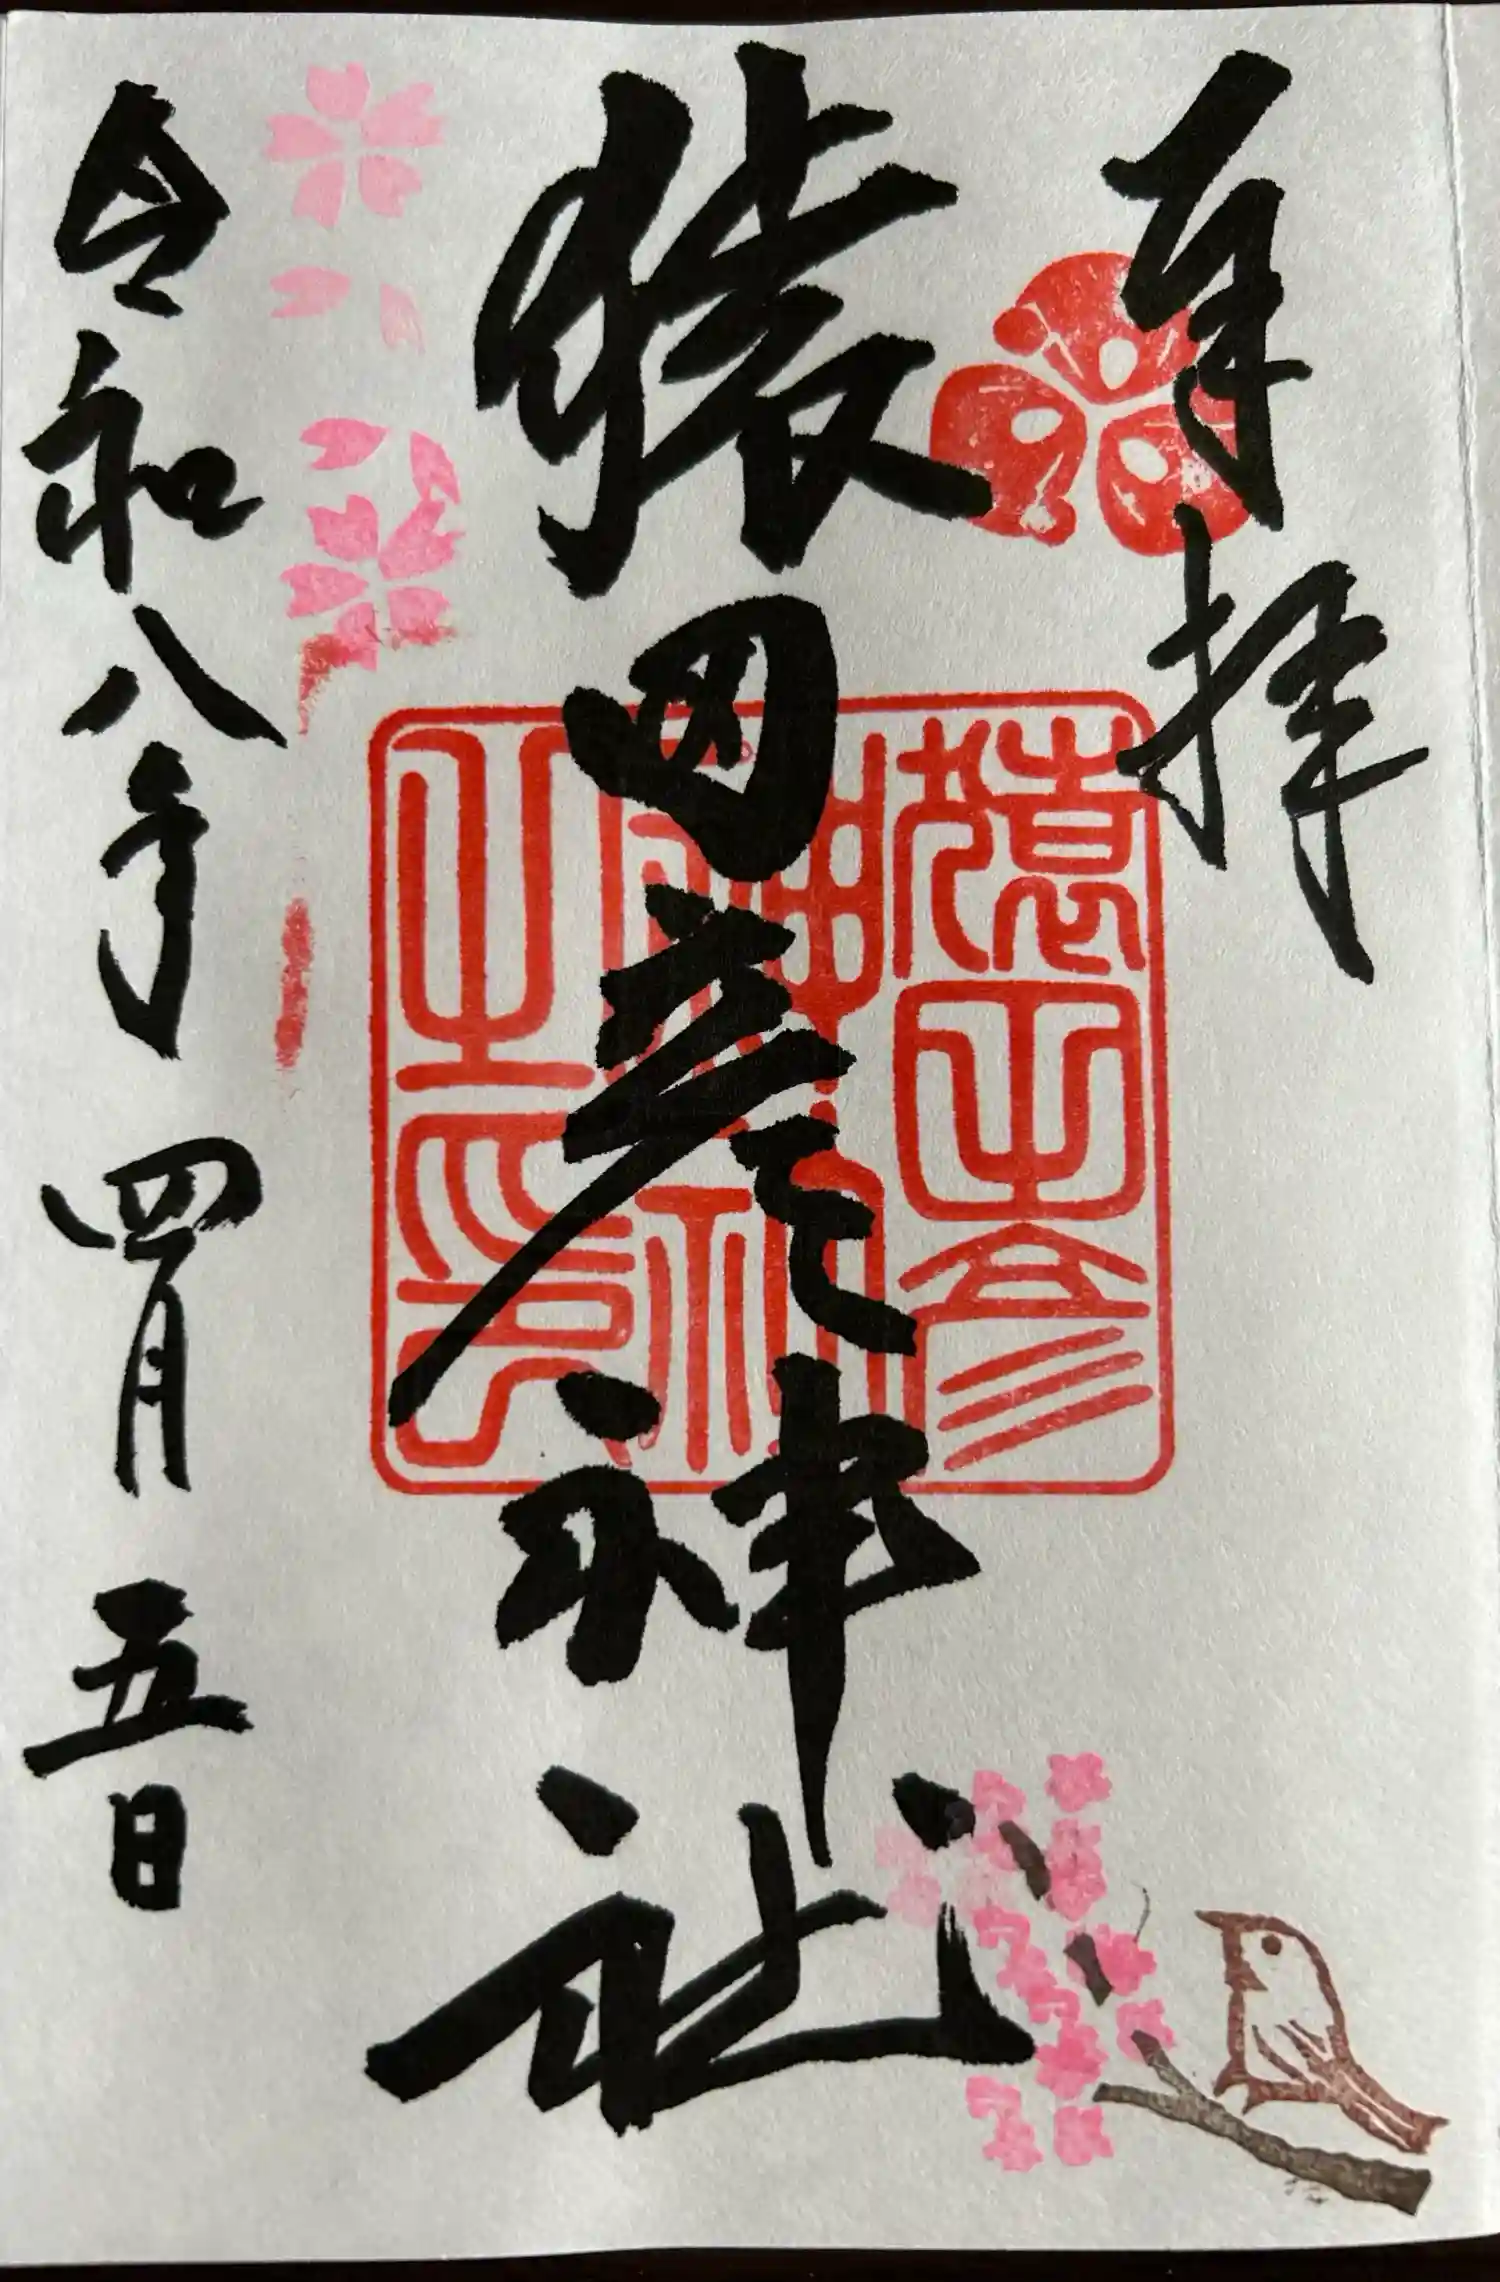 奉拝
猿田彦神社
猿田彦
神社
之印
令和八年 四月 五日